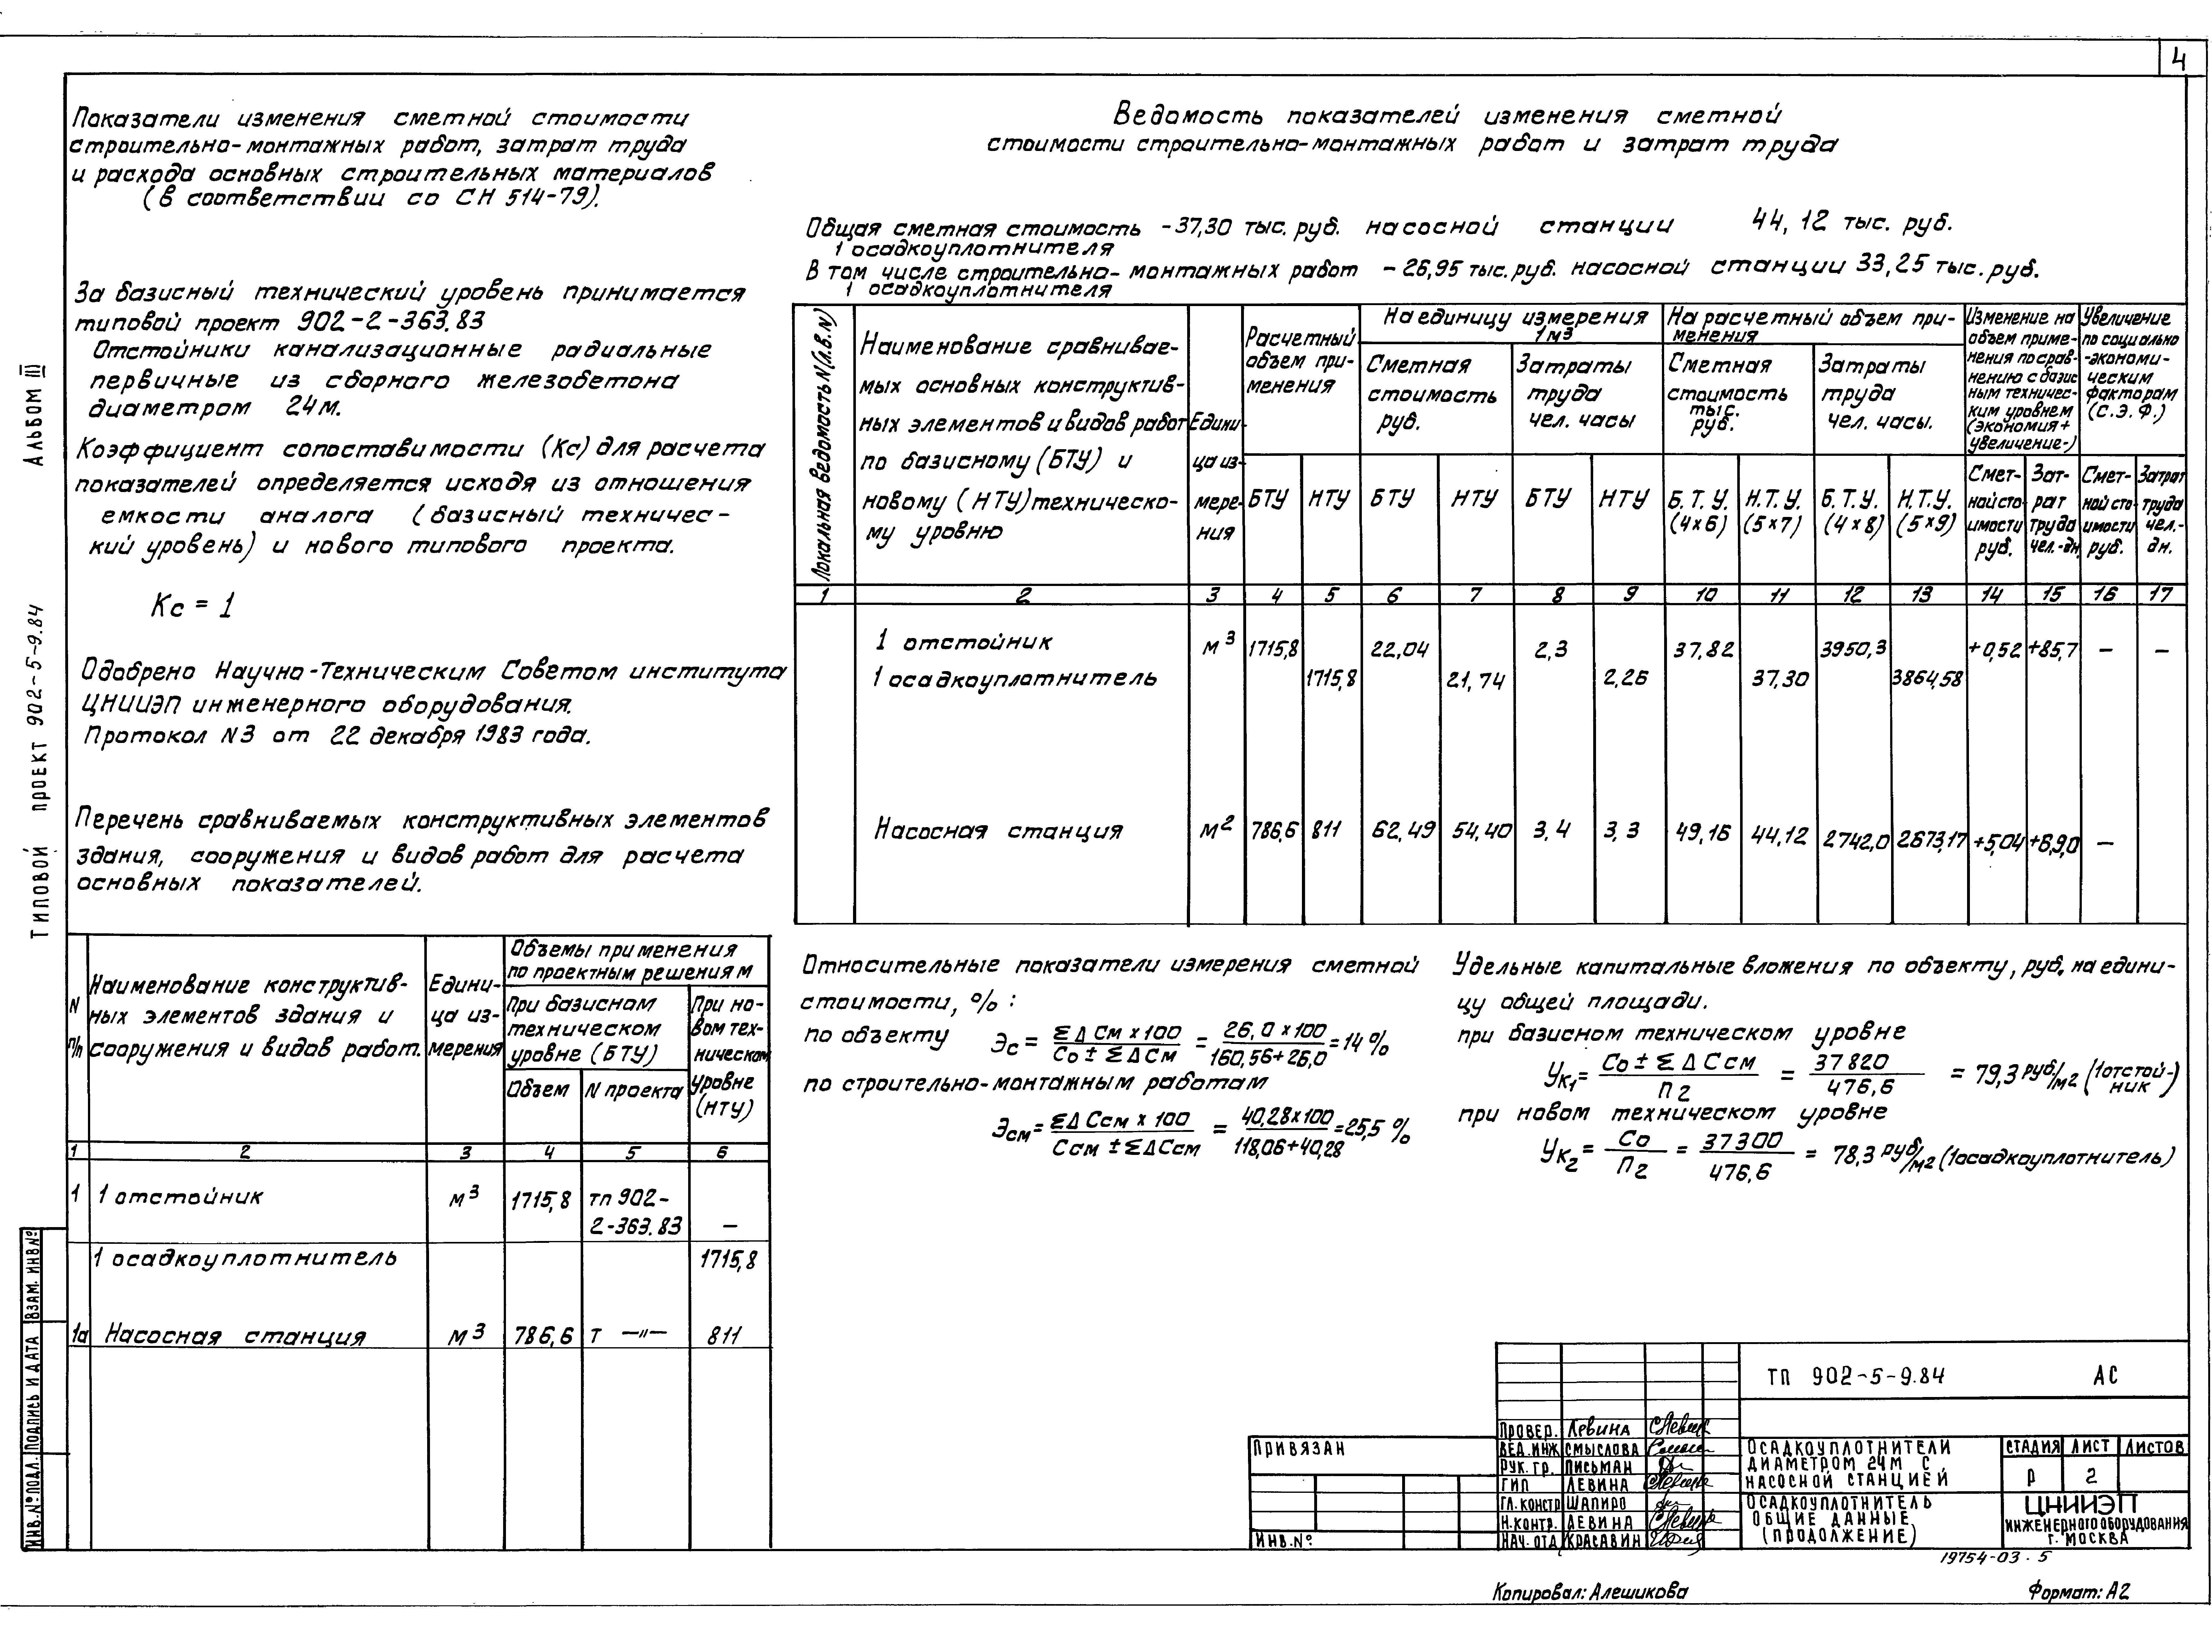 4
Показатели изменения сметной стоимости
строительно-монтажных работ, затрат труда
и расхода основных строительных материалов
(в соответствии со СН 514-79).
За базисный технический уровень принимается
типовой проект 902-2-363.83
Отстойники канализационные радиальные
первичные из сборного железобетона
диаметром 24м.
Коэффициент сопоставимости (Кс) для расчета
показателей определяется исходя из отношения
емкости аналога (базисный техничес-
кий уровень) и нового типового проекта.
Кс = 1
Одобрено Научно-Техническим Советом института
ЦНИИЭП инженерного оборудования.
Протокол N3 от 22 декабря 1983 года.
Перечень сравниваемых конструктивных элементов
здания, сооружения и видов работ для расчета
основных показателей.
N п/п
Наименование конструктив-
ных элементов здания и
сооружения и видов работ.
Едини-
ца из-
мерения
Объемы применения
по проектным решениям
При базисном
техническом
уровне (БТУ)
При но-
вом тех-
ническом
уровне
(НТУ)
Объем N проекта
1 2 3 4 5 6
1 1 отстойник м3 1715,8 тп 902-
2-363.83 —
1 осадкоуплотнитель 1715,8
1а Насосная станция м3 786,6 т —"— 811
Ведомость показателей изменения сметной
стоимости строительно-монтажных работ и затрат труда
Общая сметная стоимость -37,30 тыс. руб. насосной станции 44,12 тыс. руб.
1 осадкоуплотнителя
В том числе строительно-монтажных работ -26,95 тыс. руб. насосной станции 33,25 тыс. руб.
1 осадкоуплотнителя
Локальная ведомость N(Л.В.N)
Наименование сравнивае-
мых основных конструктив-
ных элементов и видов работ
по базисному (БТУ) и
новому (НТУ) техническо-
му уровню
Едини-
ца из-
мере-
ния
Расчетный
объем при-
менения
На единицу измерения
1м3
На расчетный объем при-
менения
Изменение на
объем приме-
нения по срав-
нению с базис
ным техничес-
ким уровнем
(экономия+
увеличение-)
Увеличение
по социально
-экономи-
ческим
факторам
(С.Э.Ф.)
Сметная
стоимость
руб.
Затраты
труда
чел. часы
Сметная
стоимость
тыс.
руб.
Затраты
труда
чел. часы.
БТУ НТУ БТУ НТУ БТУ НТУ
Б.Т.У.
(4×6)
Н.Т.У.
(5×7)
Б.Т.У.
(4×8)
Н.Т.У.
(5×9)
Смет-
ной сто-
имости
руб.
Зат-
рат
труда
чел.-дн.
Смет-
ной сто-
имости
руб.
Затрат
труда
чел.-
дн.
1 2 3 4 5 6 7 8 9 10 11 12 13 14 15 16 17
1 отстойник м3 1715,8 22,04 2,3 37,82 3950,3 +0,52 +85,7 — —
1 осадкоуплотнитель 1715,8 21,74 2,26 37,30 3864,58
Насосная станция м2 786,6 811 62,49 54,40 3,4 3,3 49,16 44,12 2742,0 2673,17 +5,04 +69,0 —
Относительные показатели измерения сметной
стоимости, %:
по объекту Эс = ΣΔСм х 100 / Со ± ΣΔСм = 26,0 х 100 / 160,56+26,0 = 14 %
по строительно-монтажным работам
Эсм = ΣΔСсм х 100 / Ссм ± ΣΔСсм = 40,28х100 / 118,06+40,28 = 25,5 %
Удельные капитальные вложения по объекту, руб. на едини-
цу общей площади.
при базисном техническом уровне
Ук1 = Со ± ΣΔСсм / П2 = 37820 / 476,6 = 79,3 руб/м2 (1отстой-
ник)
при новом техническом уровне
Ук2 = Со / П2 = 37300 / 476,6 = 78,3 руб/м2 (1осадкоуплотнитель)
ТИПОВОЙ ПРОЕКТ 902-5-9.84 АЛЬБОМ III
ИНВ.№ПОДЛ. ПОДПИСЬ И ДАТА ВЗАМ. ИНВ№
ПРИВЯЗАН
ИНВ.№
ТП 902-5-9.84 АС
ПРОВЕР. ЛЕВИНА
ВЕД.ИНЖ СМЫСЛОВА
РУК. ГР. ПИСЬМАН
ГИП ЛЕВИНА
ГЛ.КОНСТР ШАПИРО
Н.КОНТР. ЛЕВИНА
НАЧ. ОТД КРАСАВИН
ОСАДКОУПЛОТНИТЕЛИ
ДИАМЕТРОМ 24М С
НАСОСНОЙ СТАНЦИЕЙ
СТАДИЯ ЛИСТ ЛИСТОВ
Р 2
ОСАДКОУПЛОТНИТЕЛЬ
ОБЩИЕ ДАННЫЕ
(ПРОДОЛЖЕНИЕ)
ЦНИИЭП
ИНЖЕНЕРНОГО ОБОРУДОВАНИЯ
Г. МОСКВА
19754-03 . 5
Копировал: Алешикова Формат: А2